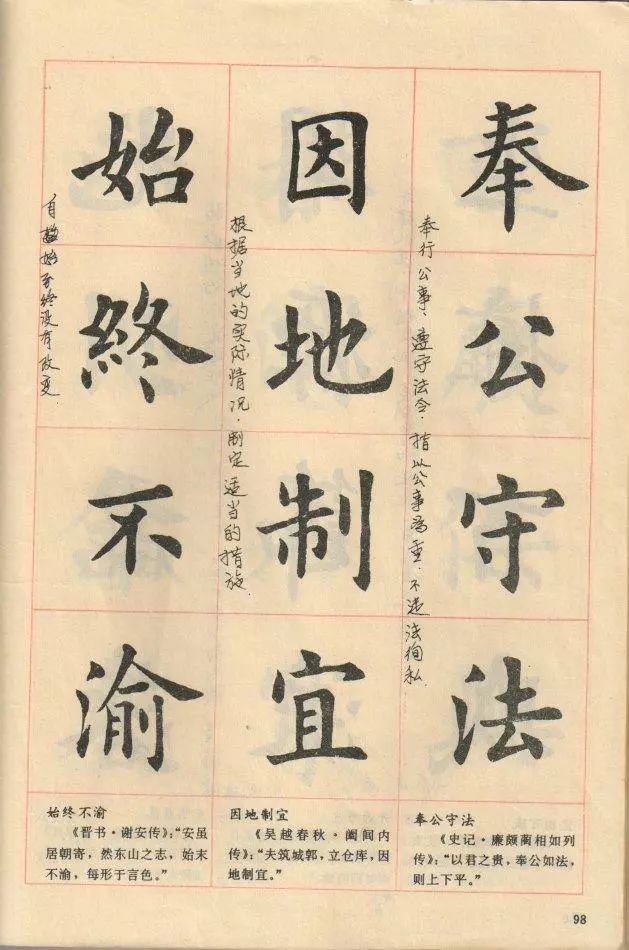 奉公守法
奉行公事，遵守法令。指以公事为重，不违法徇私。
因地制宜
根据当地的实际情况，制定适当的措施。
始終不渝
自始至终没有改变。
始终不渝
《晋书·谢安传》：“安虽
居朝寄，然东山之志，始末
不渝，每形于言色。”
因地制宜
《吴越春秋·阖闾内
传》：“夫筑城郭，立仓库，因
地制宜。”
奉公守法
《史记·廉颇蔺相如列
传》：“以君之贵，奉公如法，
则上下平。”
98